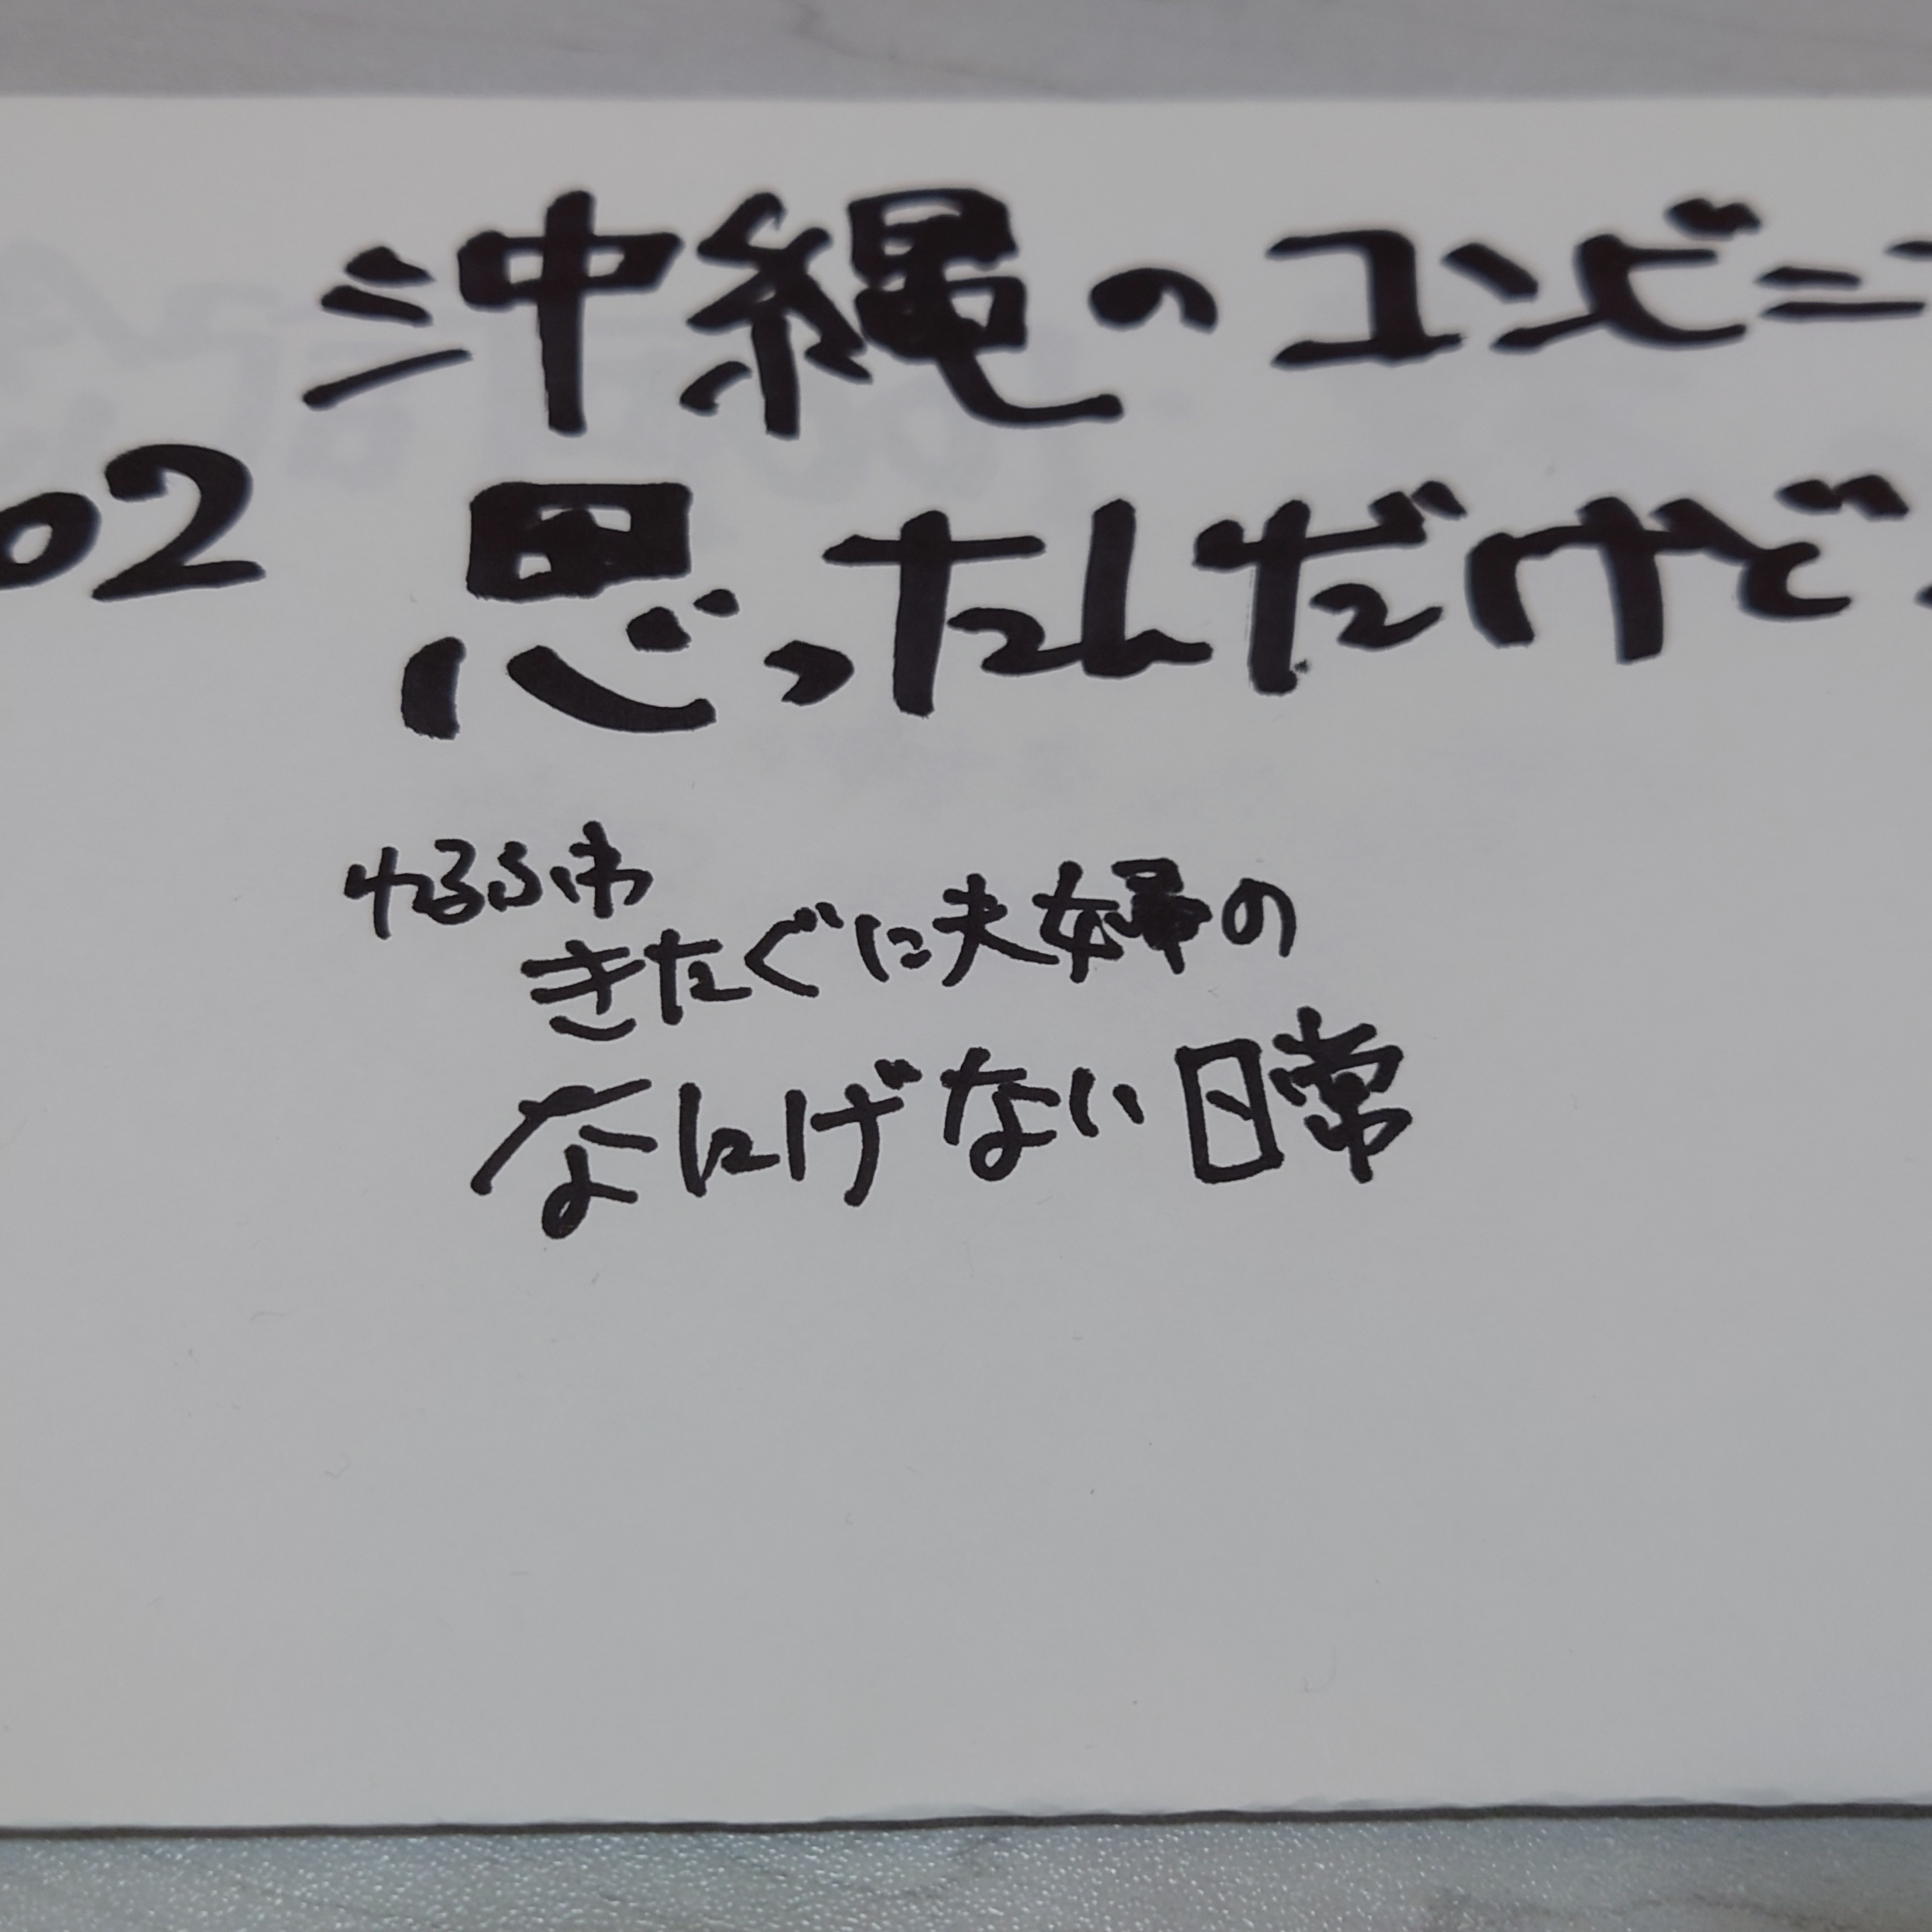 沖縄のコンビニ
02 思ったんだけど
きたぐに夫婦の
なにげない日常